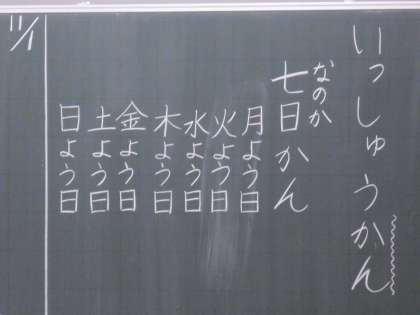 いっしゅうかん
なのか
七日かん
月よう日
火よう日
水よう日
木よう日
金よう日
土よう日
日よう日
11/1